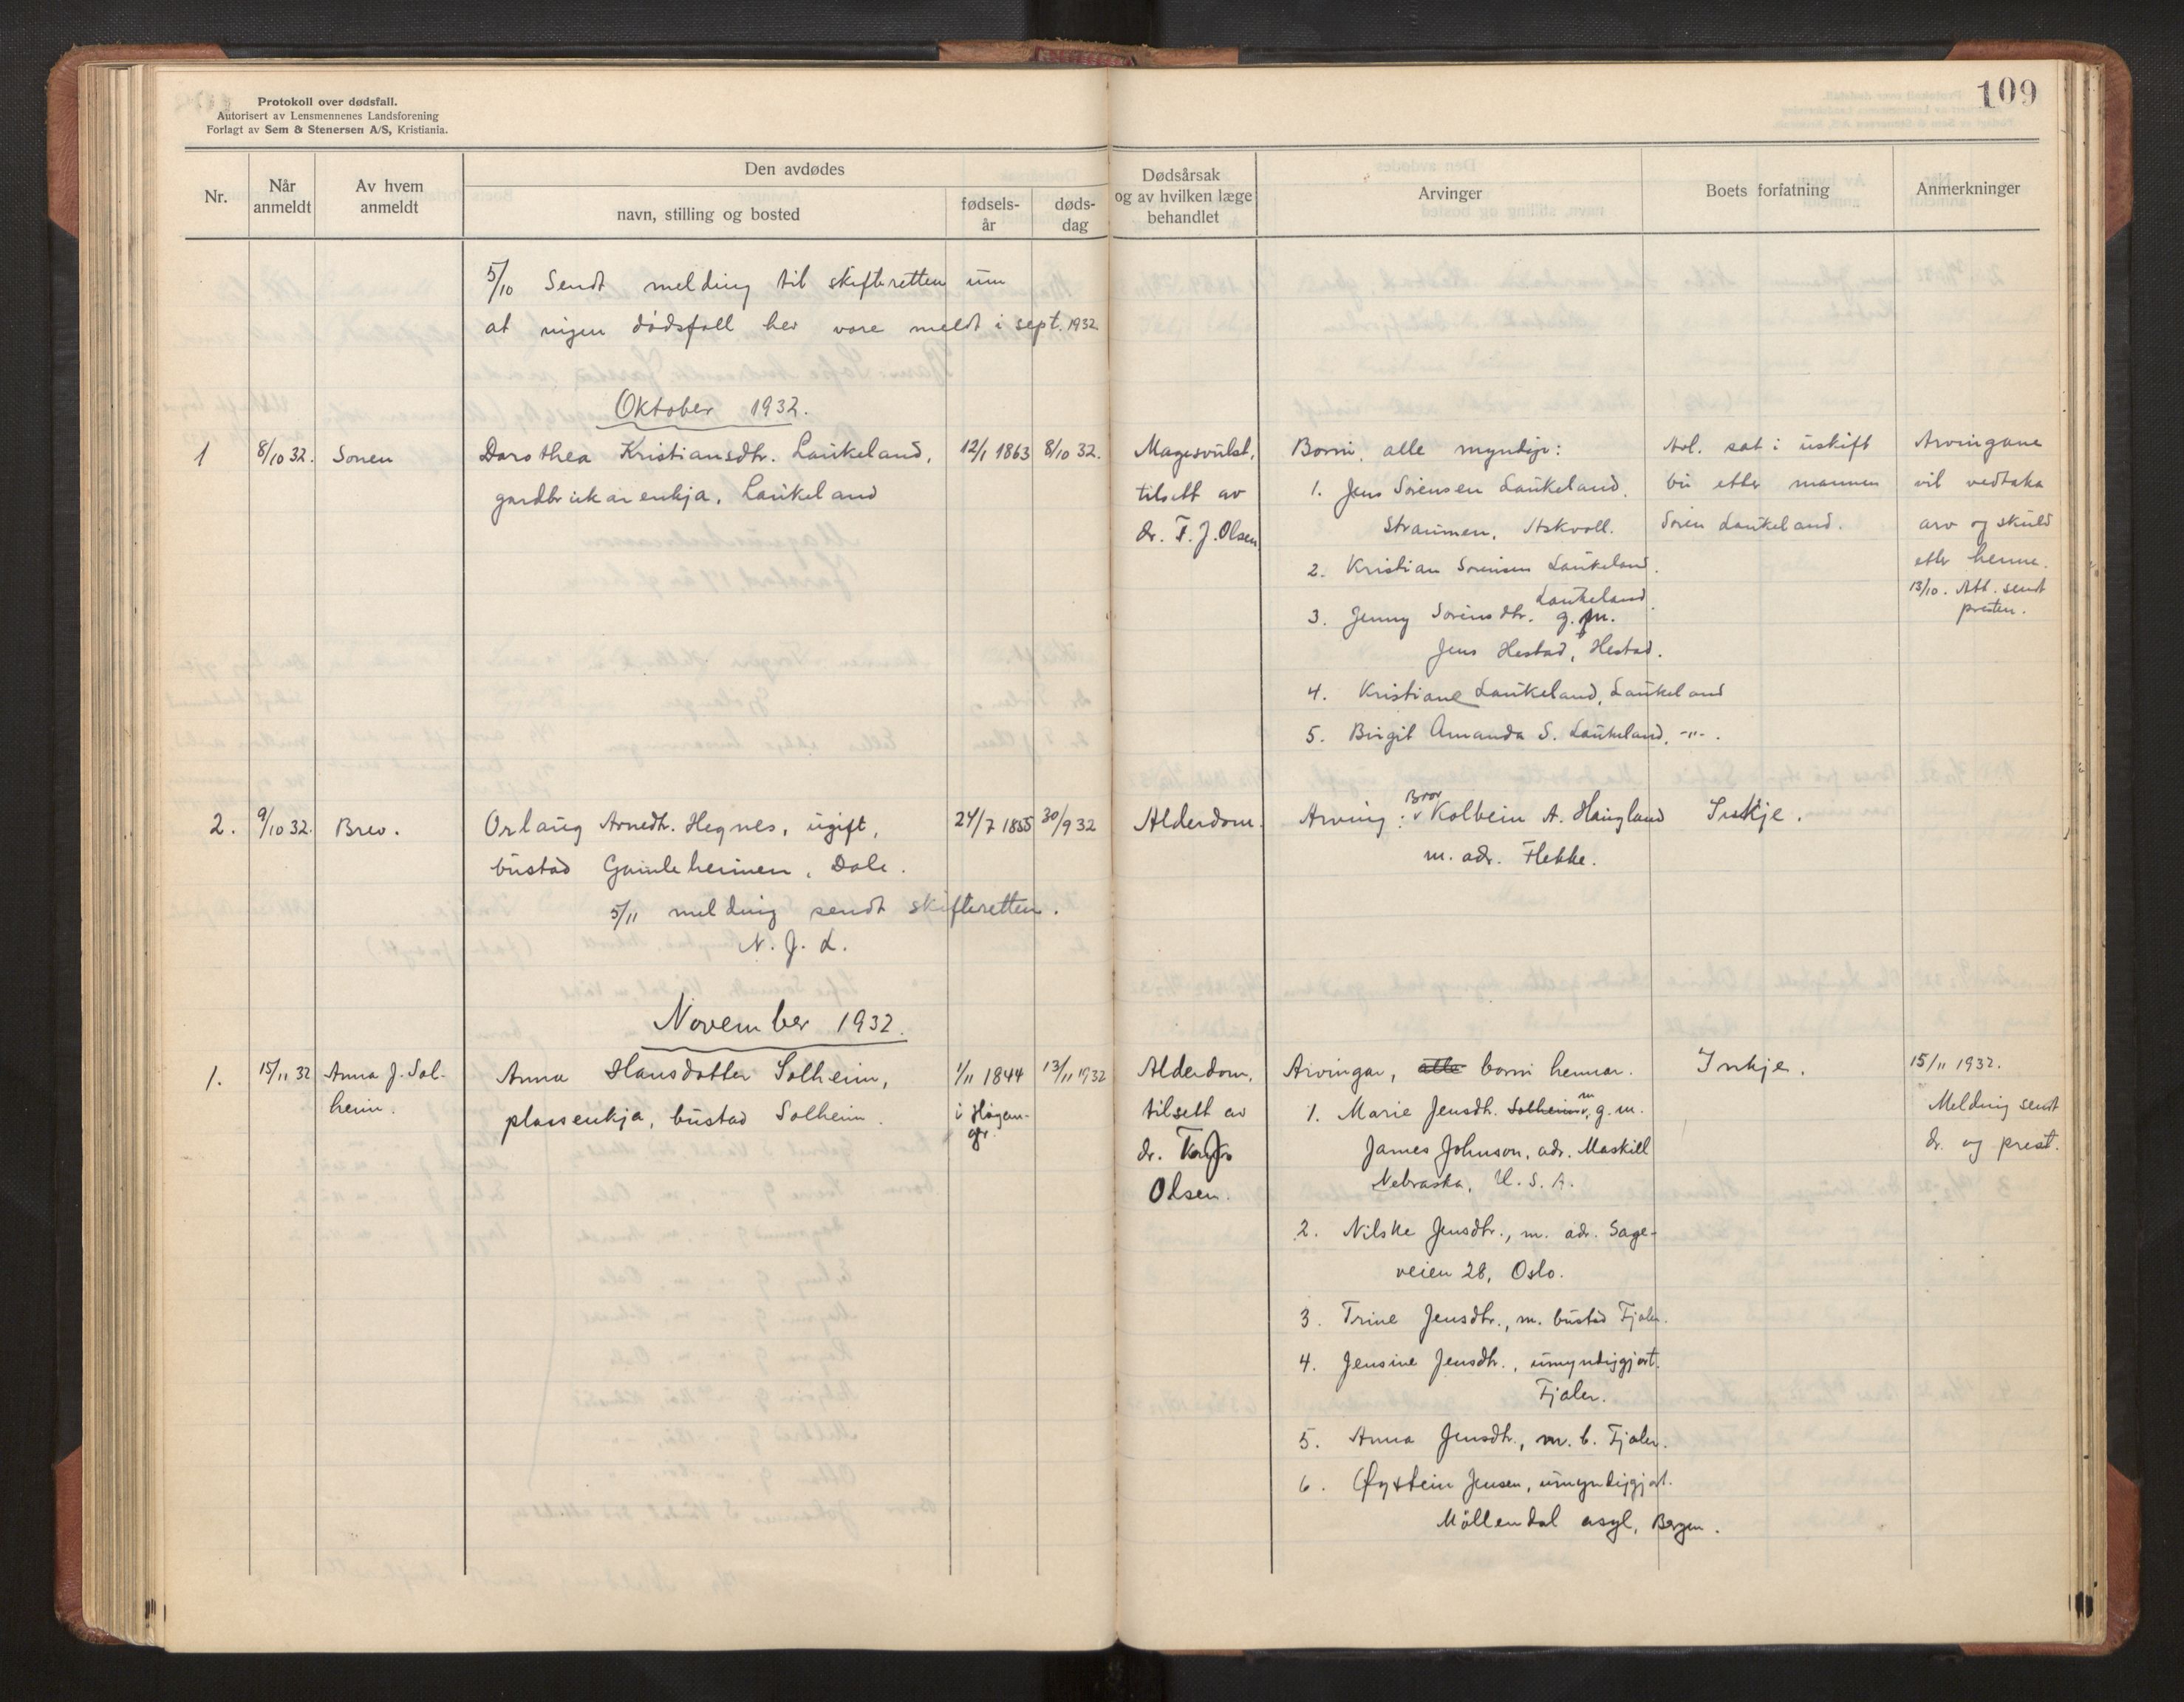 Protokoll over dødsfall.
Autorisert av Lensmennenes Landsforening
Forlagt av Sem & Stenersen A/S, Kristiania.
109
Nr.
Når anmeldt
Av hvem anmeldt
Den avdødes
navn, stilling og bosted
fødsels-år
døds-dag
Dødsårsak og av hvilken læge behandlet
Arvinger
Boets forfatning
Anmerkninger
5/10 Sendt melding til skifteretten um
at ingen dödsfall her vore meldt i sept. 1932
Oktober 1932.
1
8/10 32.
Sonen
Dorothea Kristiansdtr. Laukeland,
gardbrukarenkja, Laukeland
12/1 1863
8/10 32.
Magesvulst,
tilsett av
dr. T. J. Olsen
Borni, alle myndige:
1. Jens Sörensen Laukeland,
Straumen, Askvoll.
2. Kristian Sörensen Laukeland.
3. Jenny Sörensdtr. Laukeland, g. m.
Jens Hestad, Hestad.
4. Kristiane Laukeland, Laukeland
5. Birgit Amanda S. Laukeland, -"-.
Avl. sat i uskift
bu etter mannen
Sören Laukeland.
Arvingane
vil vedtaka
arv og skuld
etter henne.
13/10. Att. sendt
presten.
2.
9/10 32.
Brev.
Orlaug Arnedtr. Hegnes, ugift,
bustad Gamleheimen, Dale.
24/7 1855
30/9 32
Alderdom.
Arving: Bror Kolbein A. Haugland
m. adr. Flekke.
Inkje.
5/11 melding sendt skifteretten.
N. J. L.
November 1932.
1.
15/11 32
Anna J. Sol-
heim.
Anna Hansdotter Solheim,
plassenkja, bustad Solheim.
1/11 1844
i Högan-
gr.
13/11 1932
Alderdom,
tilsett av
dr.
Olsen.
Arvingar, alle borni hennar.
1. Marie Jensdtr. Solheim, m, g. m.
James Johnson, adr. Maskell
Nebraska, U. S. A.
2. Nilske Jensdtr., m. adr. Sage-
veien 28, Oslo.
3. Trine Jensdtr., m. bustad Fjaler.
4. Jensine Jensdtr., umyndiggjort.
Fjaler.
5. Anna Jensdtr., m. b. Fjaler.
6. Øystein Jensen, umyndiggjort.
Möllendal asyl, Bergen.
Inkje.
15/11 1932.
Melding sendt
dr. og prest.